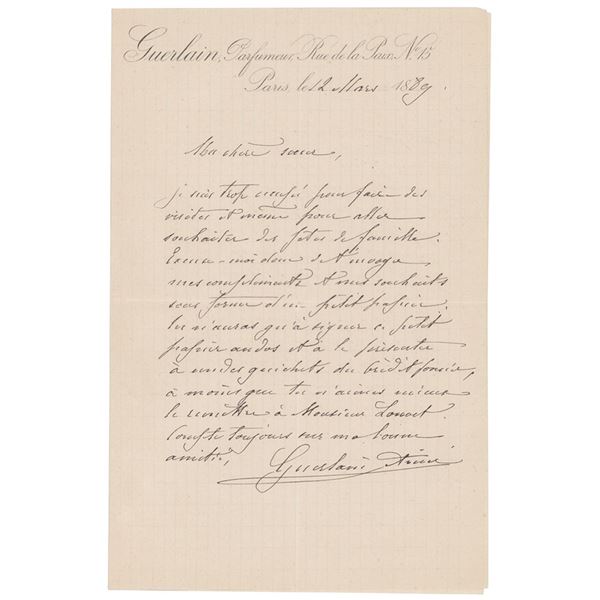 Guerlain, Parfumeur, Rue de la Paix, No. 15
Paris, le 12 Mars 1889.
Ma chère sœur,
je suis trop occupé pour faire des
visites et même pour aller
souhaiter des fêtes de famille.
Excuse-moi donc de t'envoyer
mes compliments et mes souhaits
sous forme d'un petit papier.
Tu n'auras qu'à signer ce petit
papier au dos et à le présenter
à un des guichets du Crédit foncier,
à moins que tu n'aimes mieux
le remettre à Monsieur
Compte toujours sur ma bonne
amitié,
Guerlain Aimé